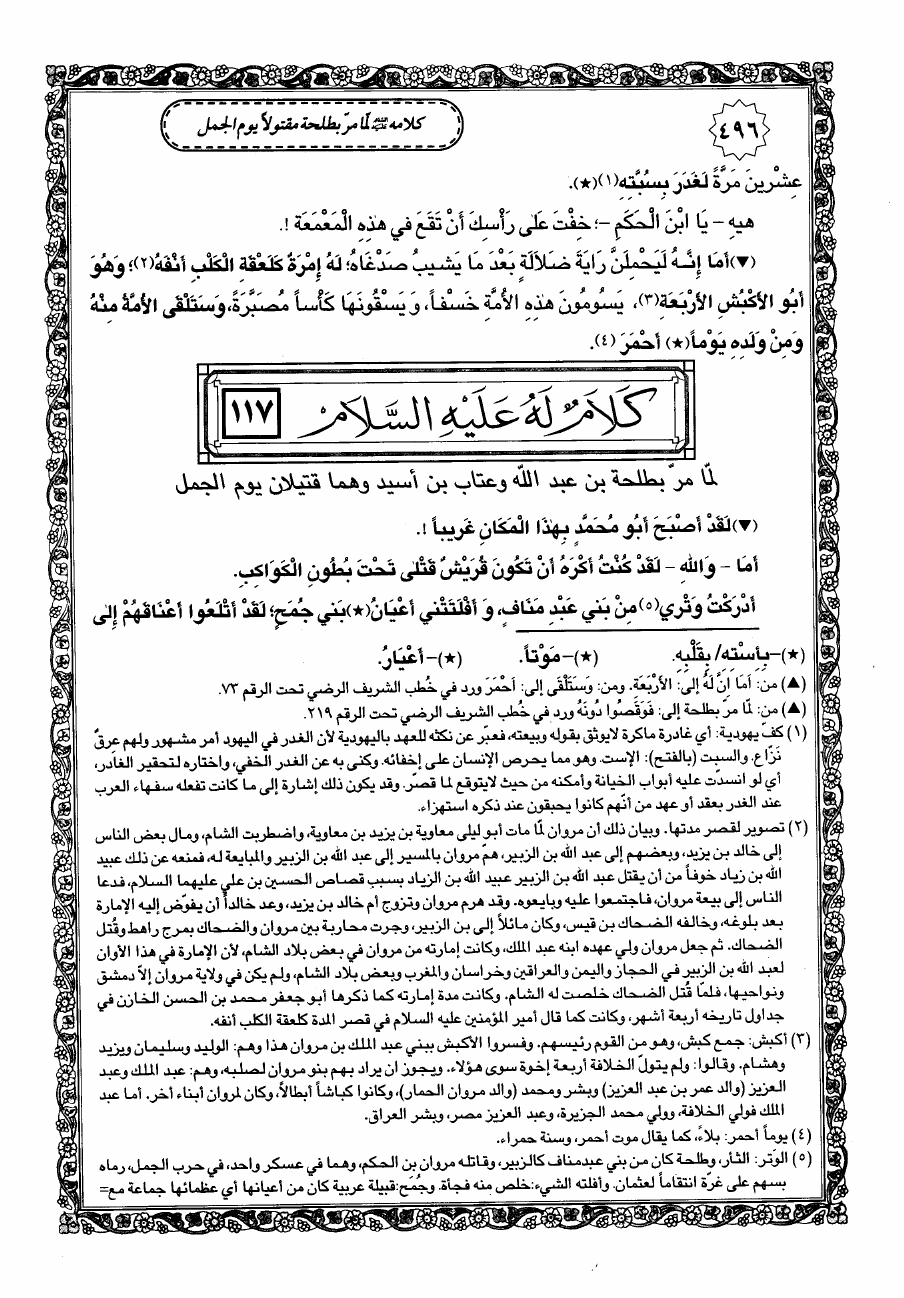 ٤٩٦
كلامه عليه السلام لمّا مرّ بطلحة مقتولاً يوم الجمل
عِشْرينَ مَرَّةً لَغَدَرَ بِسُبَّتِهِ(١)(★).
هيهِ - يَا ابْنَ الْحَكَمِ -؛ خِفْتَ عَلى رَأْسِكَ أَنْ تَقَعَ في هذِهِ الْمَعْمَعَةِ !.
(▼)أَمَا إِنَّـهُ لَيَحْمِلَنَّ رَايَةَ ضَلاَلَةٍ بَعْدَ مَا يَشيبُ صدْغَاهُ؛ لَهُ إِمْرَةٌ كَلَعْقَةِ الْكَلْبِ أَنْفَهُ(٢)؛ وَهُوَ
أَبُو الأَكْبُشِ الأَرْبَعَةِ(٣)، يَسُومُونَ هذِهِ الأُمَّةِ خَسْفاً، وَ يَسْقُونَهَا كَأْساً مُصَبَّرَةً، وَسَتَلْقَى الأُمَّةُ مِنْهُ
وَمِنْ وَلَدِهِ يَوْماً(★) أَحْمَرَ (٤).
كَلاَمٌ لَهُ عَلَيْهِ السَّلاَمُ
١١٧
لمّا مرّ بطلحة بن عبد اللّه وعتاب بن أسيد وهما قتيلان يوم الجمل
(▼)لَقَدْ أَصْبَحَ أَبُو مُحَمَّدٍ بِهذَا الْمَكَانِ غَريباً !.
أَمَا - وَاللهِ - لَقَدْ كُنْتُ أَكْرَهُ أَنْ تَكُونَ قُرَيْشٌ قَتْلى تَحْتَ بُطُونِ الْكَوَاكِبِ.
أَدْرَكْتُ وَتْري(٥)مِنْ بَني عَبْدِ مَنَافٍ، وَ أَفْلَتَتْني أَعْيَانُ(★)بَني جُمَحٍ؛ لَقَدْ أَتْلَعُوا أَعْنَاقَهُمْ إِلى
(★)-بِأسْتِهِ/ بِقَلْبِهِ. (★)-مَوْتاً. (★)-أَعْيَارُ.
(▲) من: أَمَا إِنَّ لَهُ إلى: الأَرْبَعَةِ. ومن: وَسَتَلْقَى إلى: أَحْمَرَ ورد في خُطب الشريف الرضي تحت الرقم ٧٣.
(▲) من: لمّا مرّ بطلحة إلى: فَوُقِصُوا دُونَهُ ورد في خُطب الشريف الرضي تحت الرقم ٢١٩.
(١) كفّ يهودية: أي غادرة ماكرة لايوثق بقوله وبيعته، فعبّر عن نكثه للعهد باليهودية لأن الغدر في اليهود أمر مشهور ولهم عِرقٌ
نَزّاع. والسبت (بالفتح): الإست. وهو مما يحرص الإنسان على إخفائه. وكنى به عن الغدر الخفي، واختاره لتحقير الغادر،
أي لو انسدّت عليه أبواب الخيانة وأمكنه من حيث لايتوقع لما قصّر. وقد يكون ذلك إشارة إلى ما كانت تفعله سفهاء العرب
عند الغدر بعقد أو عهد من أنّهم كانوا يحبقون عند ذكره استهزاء.
(٢) تصوير لقصر مدتها. وبيان ذلك أن مروان لمّا مات أبو ليلى معاوية بن يزيد بن معاوية، واضطربت الشام، ومال بعض الناس
إلى خالد بن يزيد، وبعضهم إلى عبد اللّه بن الزبير، همّ مروان بالمسير إلى عبد اللّه بن الزبير والمبايعة له، فمنعه عن ذلك عبيد
اللّه بن زياد خوفاً من أن يقتل عبد اللّه بن الزبير عبيد اللّه بن الزياد بسبب قصاص الحسين بن علي عليهما السلام، فدعا
الناس إلى بيعة مروان، فاجتمعوا عليه وبايعوه. وقد هرم مروان وتزوج أم خالد بن يزيد، وعد خالداً أن يفوّض إليه الإمارة
بعد بلوغه، وخالفه الضحاك بن قيس، وكان مائلاً إلى بن الزبير، وجرت محاربة بين مروان والضحاك بمرج راهط وقُتل
الضحاك. ثم جعل مروان ولي عهده ابنه عبد الملك، وكانت إمارته من مروان في بعض بلاد الشام، لأن الإمارة في هذا الأوان
لعبد اللّه بن الزبير في الحجاز واليمن والعراقين وخراسان والمغرب وبعض بلاد الشام، ولم يكن في ولاية مروان إلاّ دمشق
ونواحيها، فلمّا قُتل الضحاك خلصت له الشام. وكانت مدة إمارته كما ذكرها أبو جعفر محمد بن الحسن الخازن في
جداول تاريخه أربعة أشهر، وكانت كما قال أمير المؤمنين عليه السلام في قصر المدة كلعقة الكلب أنفه.
(٣) أكبش: جمع كبش، وهو من القوم رئيسهم. وفسروا الأكبش ببني عبد الملك بن مروان هذا وهم: الوليد وسليمان ويزيد
وهشام. وقالوا: ولم يتولّ الخلافة أربعة إخوة سوى هؤلاء. ويجوز ان يراد بهم بنو مروان لصلبه، وهم: عبد الملك وعبد
العزيز (والد عمر بن عبد العزيز) وبشر ومحمد (والد مروان الحمار)، وكانوا كباشاً أبطالاً، وكان لمروان أبناء أخر. أما عبد
الملك فولي الخلافة، وولي محمد الجزيرة، وعبد العزيز مصر، وبشر العراق.
(٤) يوماً أحمر: بلاءً، كما يقال موت أحمر، وسنة حمراء.
(٥) الوَتر: الثأر، وطلحة كان من بني عبدمناف كالزبير، وقاتله مروان بن الحكم، وهما في عسكر واحد، في حرب الجمل، رماه
بسهم على غرّة انتقاماً لعثمان. وأفلته الشيء: خلص منه فجأة. وجُمَح: قبيلة عربية كان من أعيانها أي عظمائها جماعة مع=